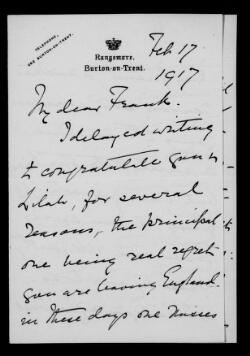 TELEPHONE,
BURTON-ON-TRENT.
Rangemore,
Burton-on-Trent.
Feb 17
1917
My dear Frank.
I delayed writing
to congratulate you &
Lilah, for several
reasons, the principal
one being real regret
you are leaving England.
in these days one misses